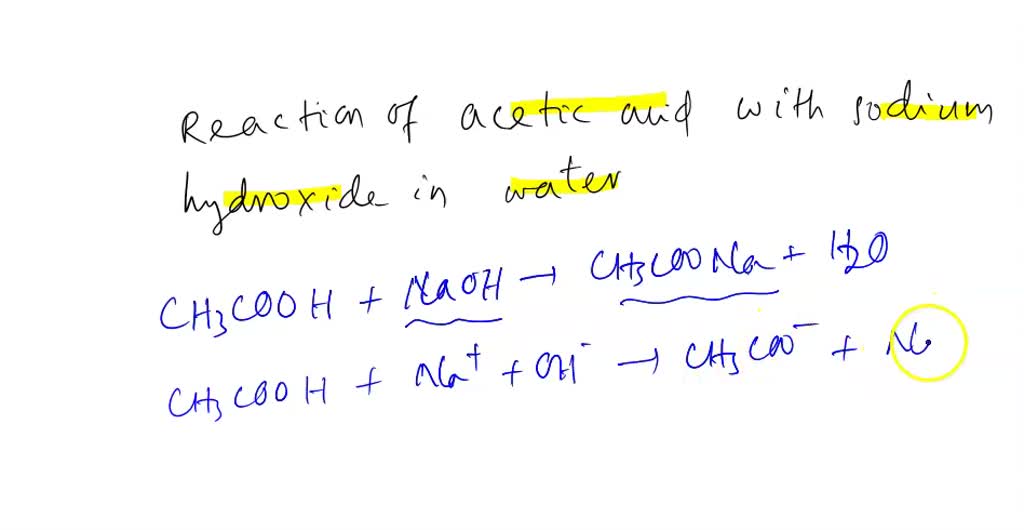 Reaction of acetic acid with sodium
hydroxide in water
CH3COOH + NaOH → CH3COONa + H2O
CH3COOH + Na⁺ + OH⁻ → CH3COO⁻ + Na